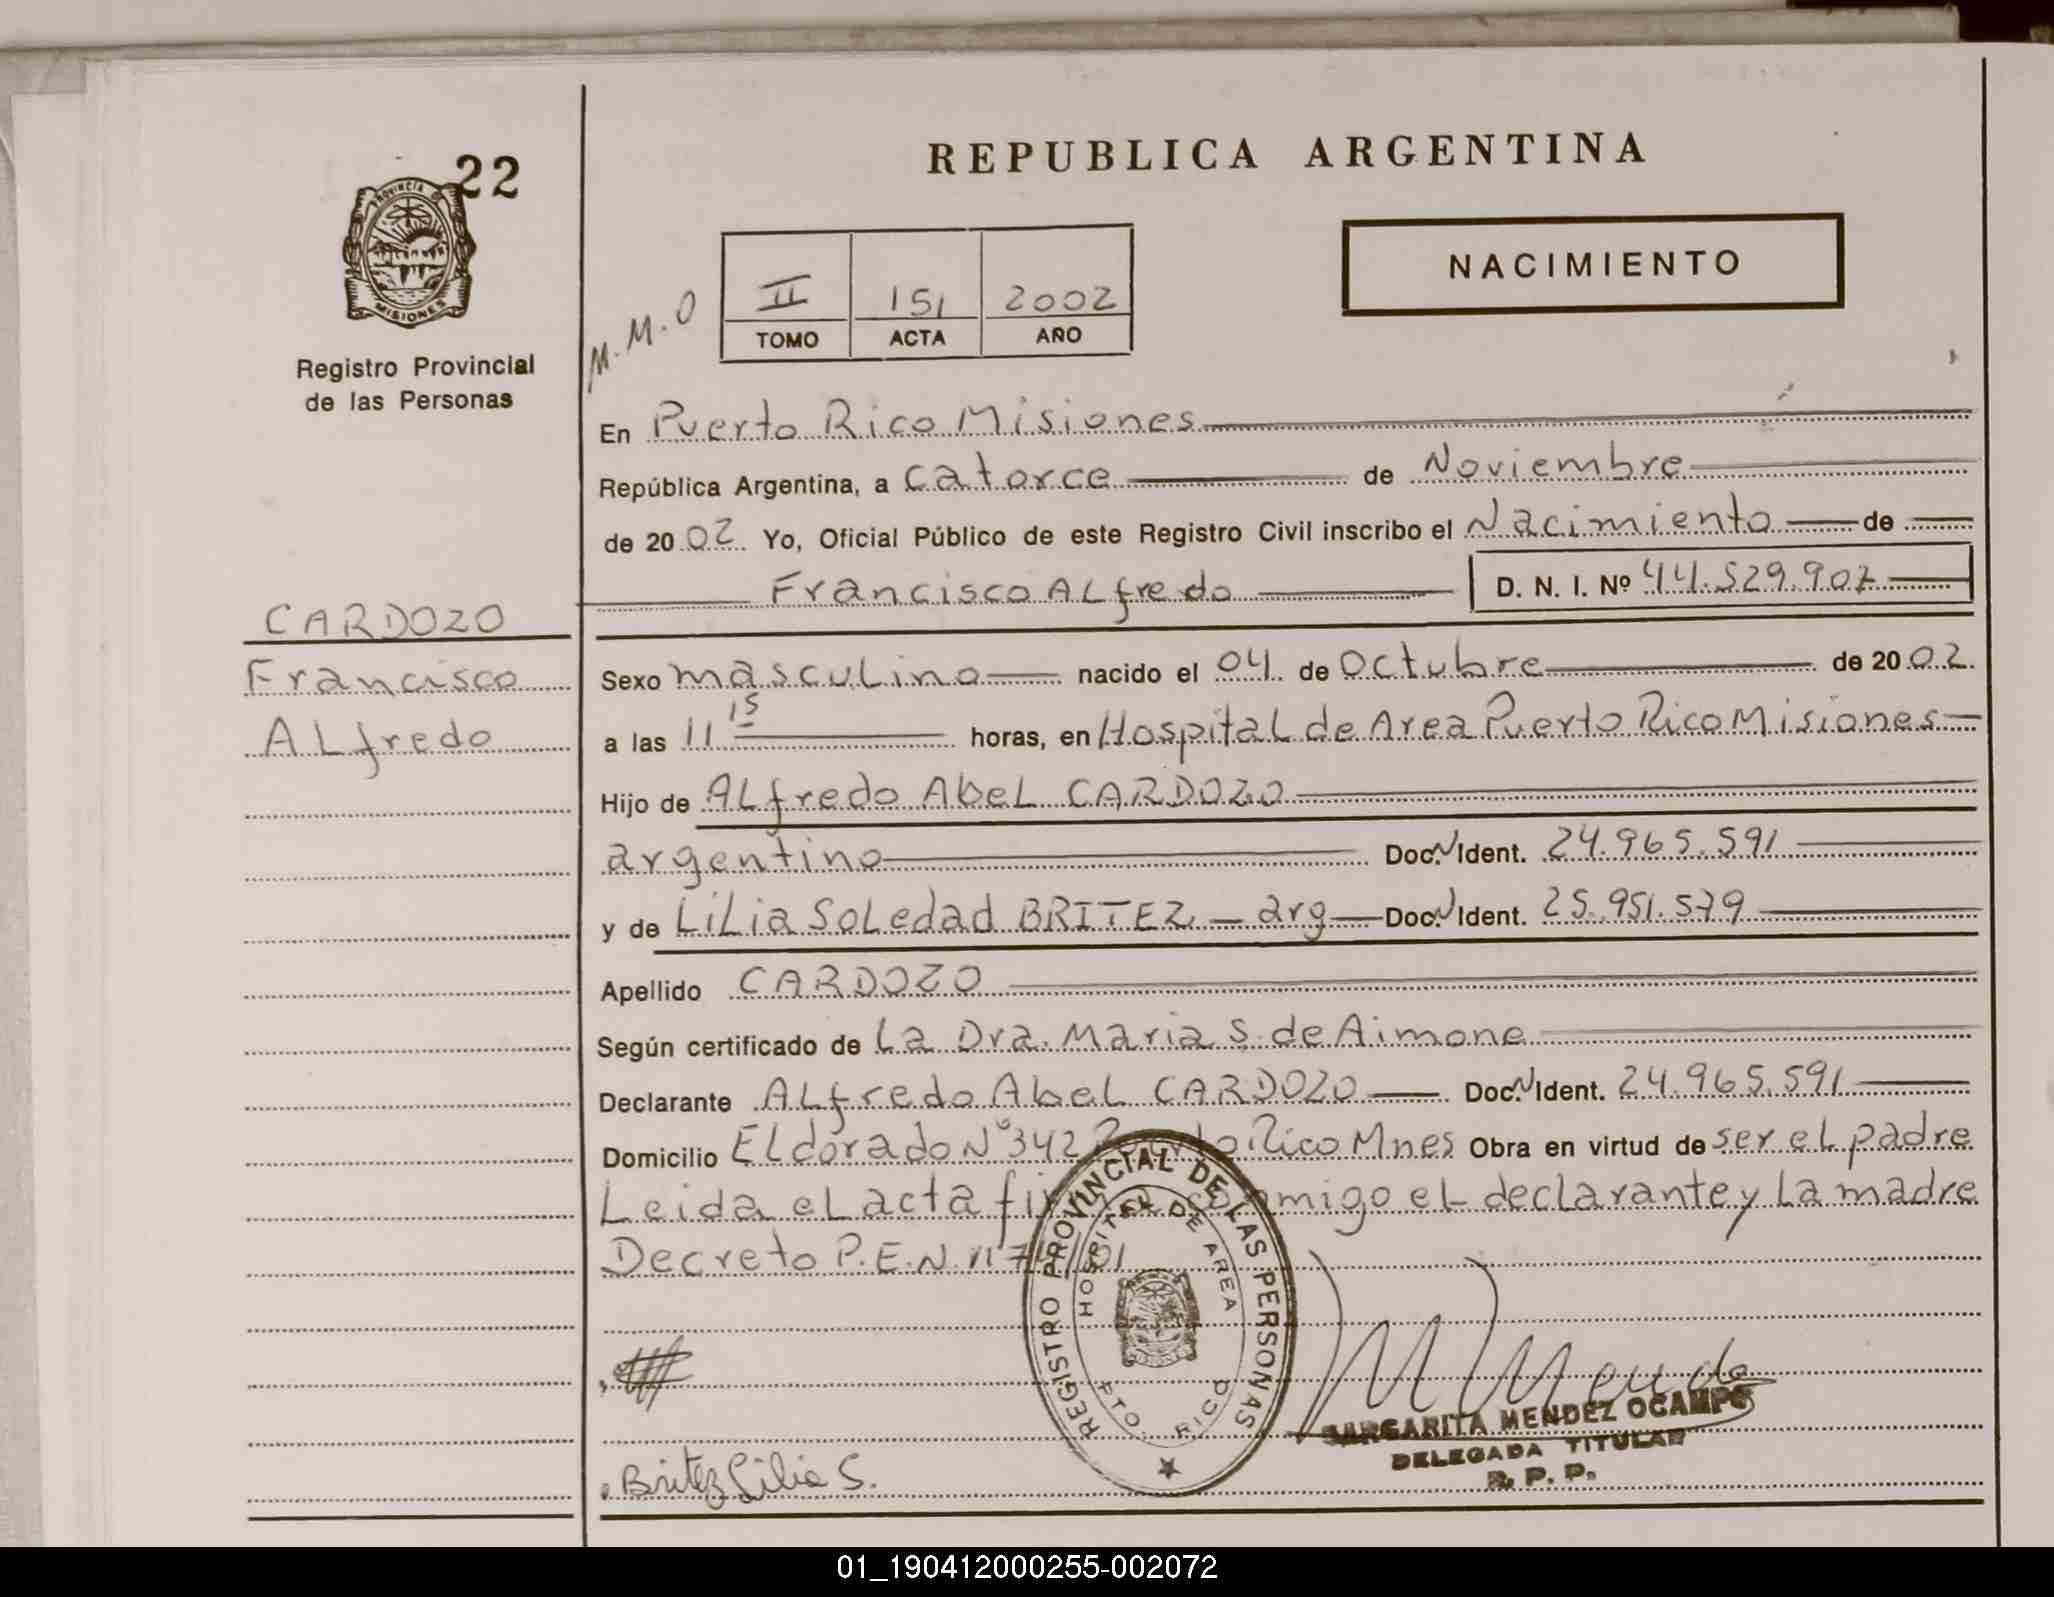 22
PROVINCIA DE
MISIONES
Registro Provincial
de las Personas
REPUBLICA ARGENTINA
NACIMIENTO
M.M.O
II 151 2002
TOMO ACTA AÑO
En Puerto Rico Misiones
República Argentina, a catorce de Noviembre
de 2002 Yo, Oficial Público de este Registro Civil inscribo el Nacimiento de
Francisco ALfredo D. N. I. Nº 44.529.907
CARDOZO
Francisco
ALfredo
Sexo mascuLino nacido el 04 de Octubre de 2002.
a las 11 15 horas, en HospitaL de Area Puerto Rico Misiones
Hijo de ALfredo AbeL CARDOZO
argentino Doc. N Ident. 24.965.591
y de LiLia SoLedad BRITEZ - arg Doc. N Ident. 25.951.579
Apellido CARDOZO
Según certificado de La Dra. Maria S. de Aimone
Declarante ALfredo AbeL CARDOZO Doc. N Ident. 24.965.591
Domicilio ELdorado Nº 342 Puerto Rico Mnes Obra en virtud de ser eL padre
Leida eL acta conmigo eL declarante y La madre
Decreto P.E.N.
REGISTRO PROVINCIAL DE LAS PERSONAS
HOSPITAL DE AREA
PTO. RICO
MISIONES
M Mende
MARGARITA MENDEZ OCAMPO
DELEGADA TITULAR
R. P. P.
Britez Lilia S.
01_190412000255-002072